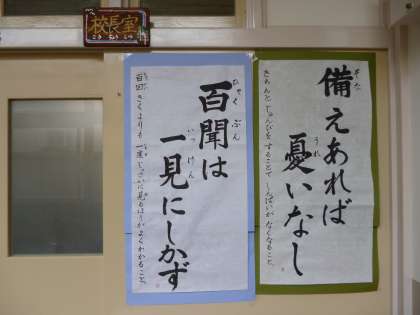 校長室
こうちょうしつ
備えあれば
そな
憂いなし
うれ
きちんとじゅんびをすることで しんぱいがなくなること。
百聞は
ひゃくぶん
一見にしかず
いっけん
百回きくよりも 一度じっさいに見るほうがよくわかること。